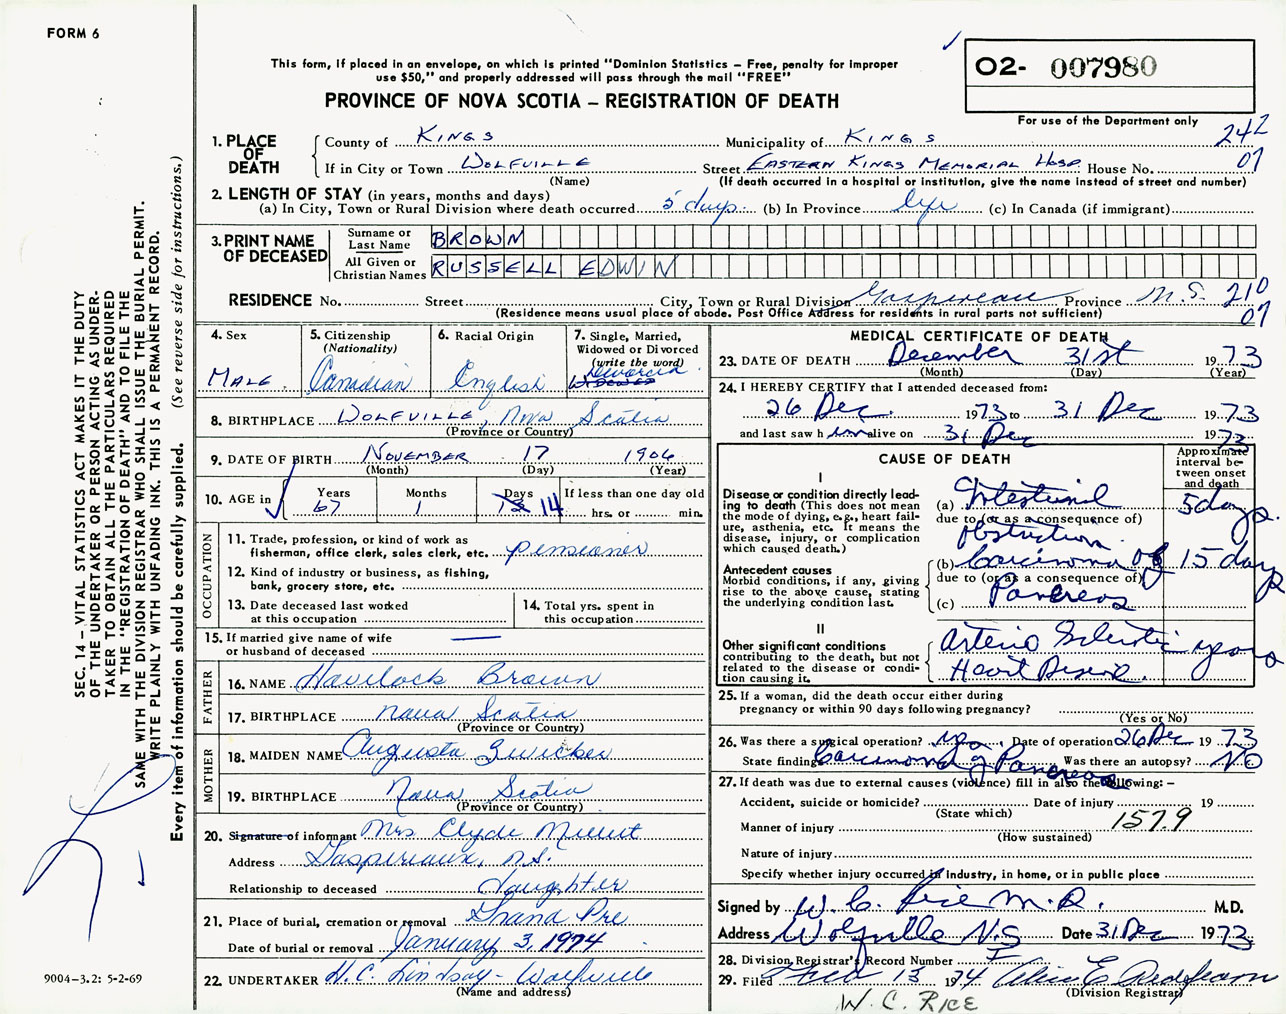 FORM 6
This form, if placed in an envelope, on which is printed "Dominion Statistics – Free, penalty for improper
use $50," and properly addressed will pass through the mail "FREE"
PROVINCE OF NOVA SCOTIA – REGISTRATION OF DEATH
02- 007980
For use of the Department only
242
07
1. PLACE OF DEATH
County of KINGS Municipality of KINGS
If in City or Town WOLFVILLE Street EASTERN KINGS MEMORIAL HOSP. House No.
(Name) (If death occurred in a hospital or institution, give the name instead of street and number)
2. LENGTH OF STAY (in years, months and days)
(a) In City, Town or Rural Division where death occurred 5 days. (b) In Province life (c) In Canada (if immigrant)
3. PRINT NAME OF DECEASED
Surname or Last Name BROWN
All Given or Christian Names RUSSELL EDWIN
RESIDENCE No. Street City, Town or Rural Division Gaspereau Province N.S. 210
07
(Residence means usual place of abode. Post Office Address for residents in rural parts not sufficient)
4. Sex
MALE
5. Citizenship
(Nationality)
Canadian
6. Racial Origin
English
7. Single, Married,
Widowed or Divorced
(write the word)
Divorced
WIDOWED
8. BIRTHPLACE WOLFVILLE, Nova Scotia
(Province or Country)
9. DATE OF BIRTH NOVEMBER 17 1906
(Month) (Day) (Year)
10. AGE in
Years Months Days If less than one day old
67 1 14 hrs. or min.
OCCUPATION
11. Trade, profession, or kind of work as
fisherman, office clerk, sales clerk, etc. pensioner
12. Kind of industry or business, as fishing,
bank, grocery store, etc.
13. Date deceased last worked
at this occupation
14. Total yrs. spent in
this occupation
15. If married give name of wife
or husband of deceased —
FATHER
16. NAME Havelock Brown
17. BIRTHPLACE Nova Scotia
(Province or Country)
MOTHER
18. MAIDEN NAME Augusta Zwicker
19. BIRTHPLACE Nova Scotia
(Province or Country)
20. Signature of informant Mrs Clyde
Address Gaspereaux, N.S.
Relationship to deceased daughter
21. Place of burial, cremation or removal Grand Pre
Date of burial or removal January 3, 1974
22. UNDERTAKER H.C. Lindsay - Wolfville
(Name and address)
MEDICAL CERTIFICATE OF DEATH
23. DATE OF DEATH December 31st 1973
(Month) (Day) (Year)
24. I HEREBY CERTIFY that I attended deceased from:
26 Dec. 1973 to 31 Dec 1973
and last saw h im alive on 31 Dec 1973
CAUSE OF DEATH
Approximate
interval be-
tween onset
and death
I
Disease or condition directly lead-
ing to death (This does not mean
the mode of dying, e.g., heart fail-
ure, asthenia, etc. It means the
disease, injury, or complication
which caused death.)
(a) Intestinal 5 days.
due to (or as a consequence of)
obstruction.
Antecedent causes
Morbid conditions, if any, giving
rise to the above cause, stating
the underlying condition last.
(b) Carcinoma of 15 days
due to (or as a consequence of)
(c) Pancreas
II
Other significant conditions
contributing to the death, but not
related to the disease or condi-
tion causing it.
Arterio Sclerotic years
Heart Disease.
25. If a woman, did the death occur either during
pregnancy or within 90 days following pregnancy?
(Yes or No)
26. Was there a surgical operation? yes. Date of operation 26 Dec 1973
State finding Carcinoma of Pancreas Was there an autopsy? NO
27. If death was due to external causes (violence) fill in also the following: –
Accident, suicide or homicide? Date of injury 19
(State which)
Manner of injury 157.9
(How sustained)
Nature of injury
Specify whether injury occurred in industry, in home, or in public place
Signed by W. C. Rice M.D. M.D.
Address Wolfville N.S Date 31 Dec 1973
28. Division Registrar's Record Number
29. Filed 13 1974 Alice E.
(Division Registrar)
W. C. RICE
SEC. 14 – VITAL STATISTICS ACT MAKES IT THE DUTY
OF THE UNDERTAKER OR PERSON ACTING AS UNDER-
TAKER TO OBTAIN ALL THE PARTICULARS REQUIRED
IN THE "REGISTRATION OF DEATH" AND TO FILE THE
SAME WITH THE DIVISION REGISTRAR WHO SHALL ISSUE THE BURIAL PERMIT.
WRITE PLAINLY WITH UNFADING INK. THIS IS A PERMANENT RECORD.
Every item of information should be carefully supplied. (See reverse side for instructions.)
9004–3.2: 5-2-69